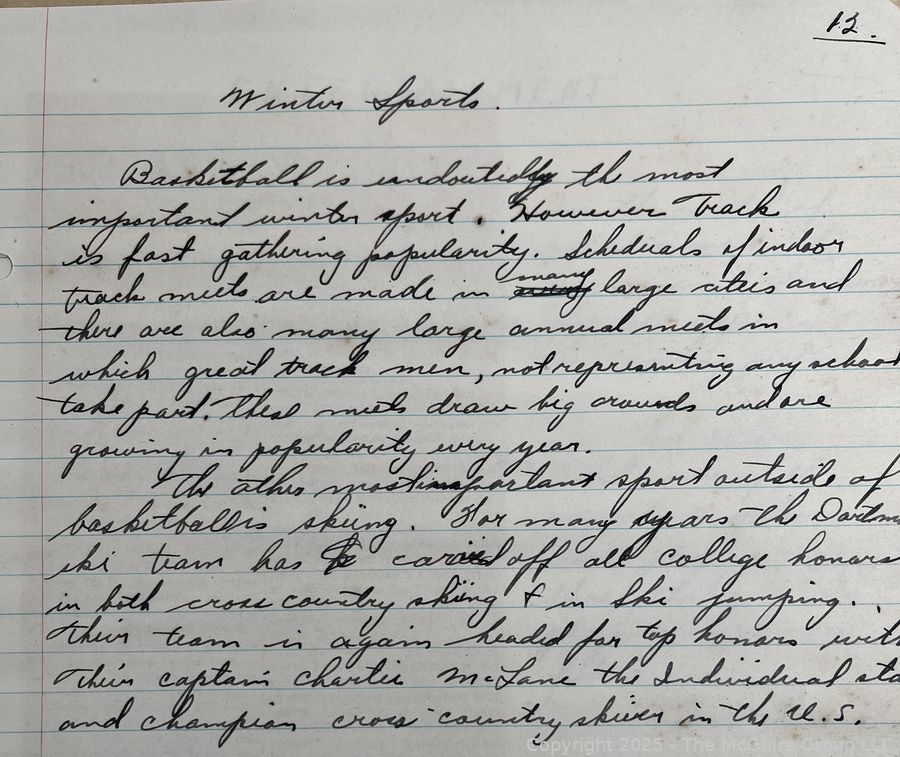 12.
Winter Sports.
Basketball is undoutedly the most
important winter sport. However Track
is fast gathering popularity. Scheduals of indoor
track meets are made in many large citeis and
there are also many large annual meets in
which great track men, not representing any school
take part. These meets draw big crowds and are
growing in popularity every year.
The other most important sport outside of
basketball is skiing. For many years the Dartm
ski team has carried off all college honors
in both cross country skiing & in Ski jumping.
Their team is again headed for top honors with
Their captain Charlie McLane the Individual sta
and champion cross country skiier in the U.S.
Copyright 2025 - The McGuire Group LLC